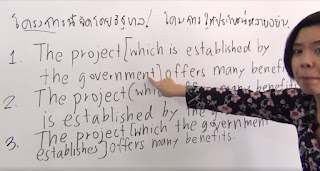 โครงการที่จัดโดยรัฐบาล / โครงการ ให้ประโยชน์หลายอย่าง
1. The project [which is established by
the government] offers many benefi
2. The project (which
is established by the go
3. The project [which the government
establishes] offers many benefits.